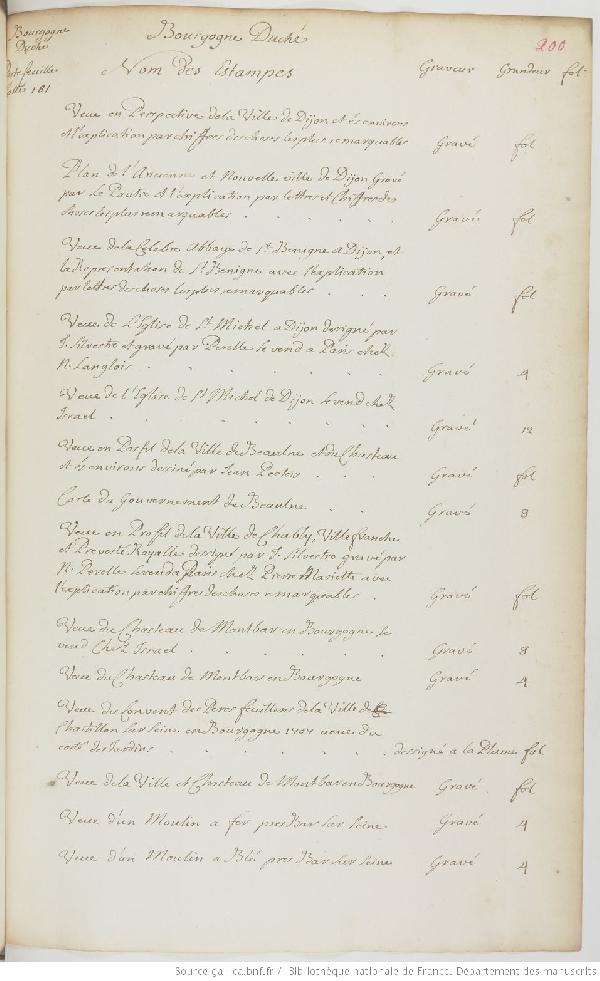 Bourgogne Duché
200
Bourgogne
Duché
Portefeuille
cotté 181
Nom Des Estampes Graveur Grandeur fol.
Veue en Perspective dela Ville de Dijon et és environs
et l'explication par chiffres des choses les plus remarquables Gravé fol
Plan de l'Ancienne et Nouvelle ville de Dijon Gravé
par Le Pautre et l'explication par lettres et Chiffres des
choses les plus remarquables . . . . . Gravé fol
Veue dela Celebre Abbaye de St Benigne a Dijon, et
la Representation de St Benigne avec l'explication
par lettres des choses les plus remarquables . . . Gravé fol
Veue de L'Eglise de St Michel a Dijon designé par
J. Silvestre et gravé par Perelle se vend a Paris chez
N. Langlois . . . . . . Gravé 4
Veue de l'Eglise de St Michel de Dijon se vend chez
Israel . . . . . . Gravé 12
Veue en Porfil dela Ville de Beaulne et du Chasteau
et és environs dessiné par Jean . . Gravé fol
Carte du Gouvernement de Beaulne . . Gravé 8
Veue en Profil dela Ville de Chably, Ville franche
et Prevosté Royalle designé par J. Silvestre gravé par
N. Perelle se vend a Paris chez Pierre Mariette avec
l'explication par chiffres des choses remarquables . Gravé fol
Veue du Chasteau de Montbar en Bourgogne se
vend Chez Israel . . . . . Gravé 8
Veue du Chasteau de Montbar en Bourgogne Gravé 4
Veue du Convent des Peres feuillens dela Ville de
Chastillon sur seine en Bourgogne 1707 veue du
costé des Jardins . . . . . . dessigné a la Plume fol
Veue dela Ville et Chasteau de Montbar en Bourgogne Gravé . fol
Veue d'un Moulin a fer pres Bar sur seine Gravé 4
Veue d'un Moulin a Blé pres Bar sur seine Gravé 4
Source gallica.bnf.fr / Bibliothèque nationale de France. Département des manuscrits.